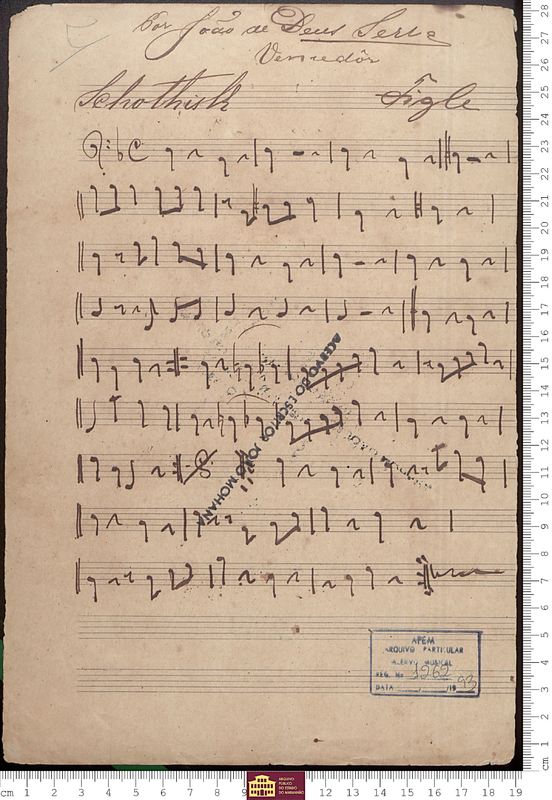 Por João de Deus Serra
Vencedôr
Schothisk Figle
ACERVO DO ESCRITOR JOÃO MOHANA
APEM
ARQUIVO PARTICULAR
ACERVO MUSICAL
REG. Nº 1262
DATA / /19 93
cm 1 2 3 4 5 6 7 8 9 12 13 14 15 16 17 18 19
ARQUIVO
PÚBLICO
DO ESTADO
DO MARANHÃO
cm 1 2 3 4 5 6 7 8 9 10 11 12 13 14 15 16 17 18 19 20 21 22 23 24 25 26 27 28